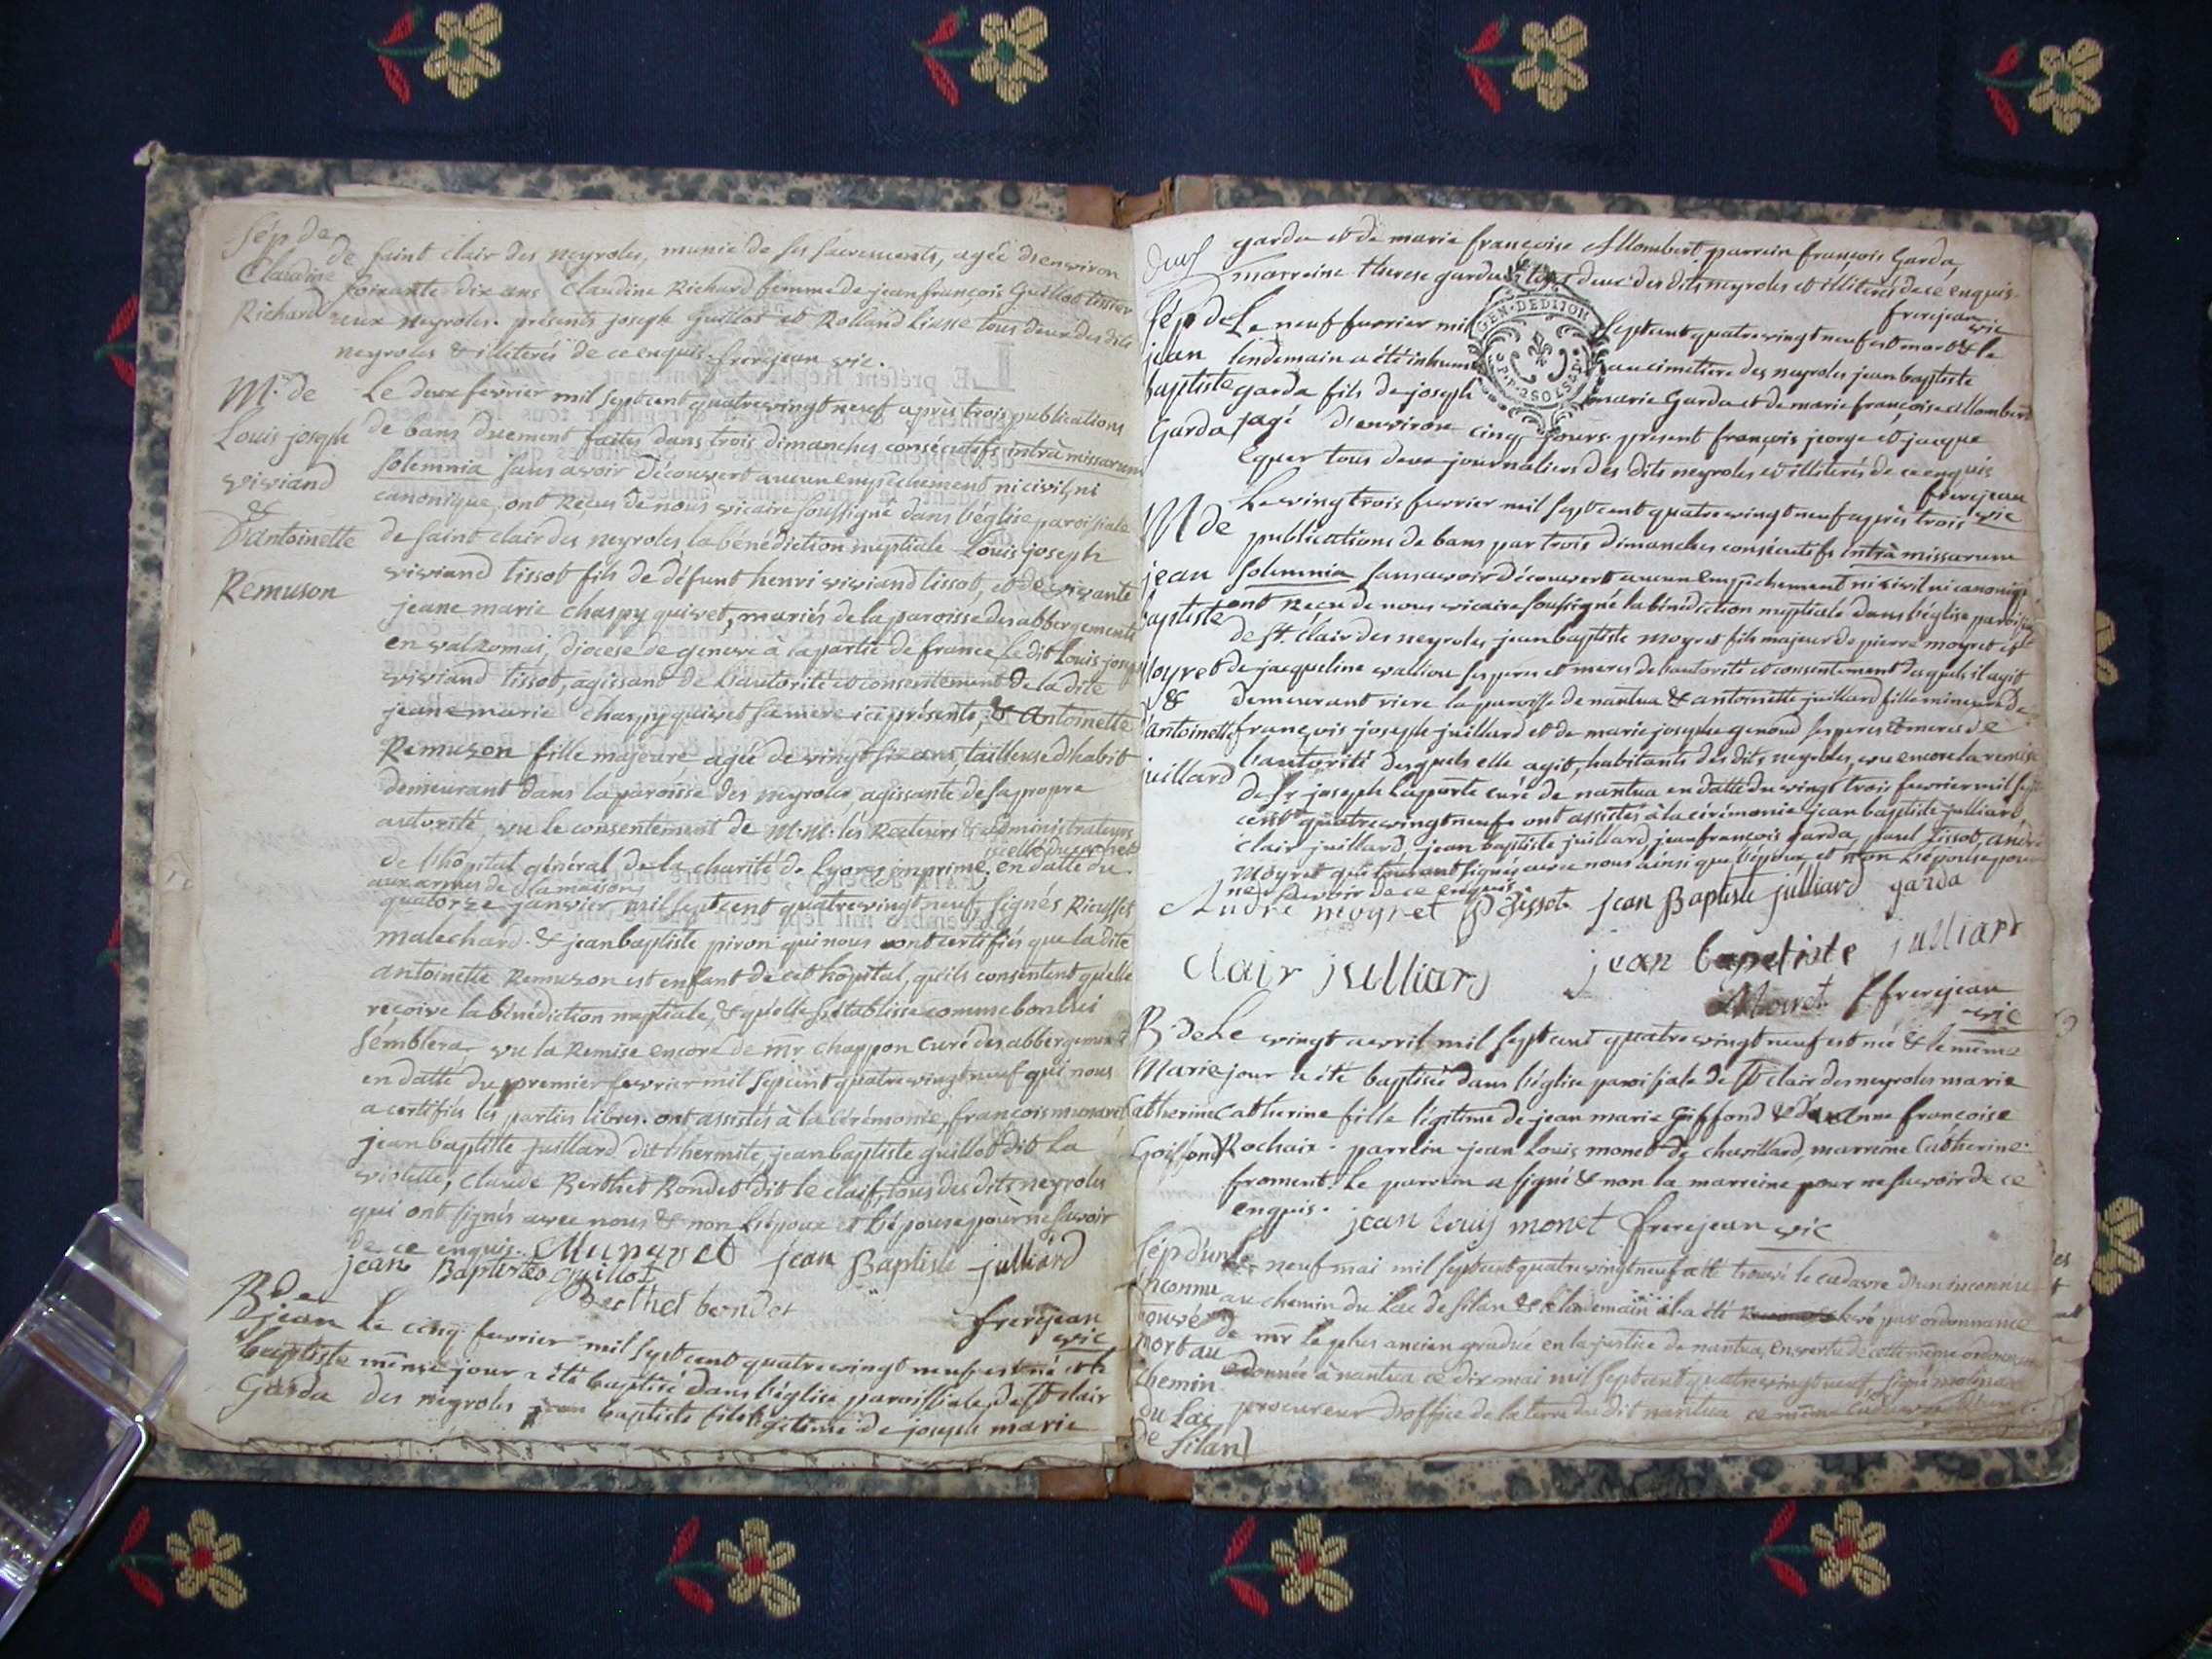 Sép de
Claudine
Richard
de saint clair des neyroles, munie de ses sacrements, agée d'environ
soixante dix ans Claudine Richard femme de jean françois Guillot tissier
aux neyroles. présents joseph Guillot et Rolland Liasse tous deux des dits
neyroles & illiterés de ce enquis. frerejean vic.
M. de
Louis joseph
viviand
&
D'antoinette
Remuson
Le deux fevrier mil sept cent quatre vingt neuf après trois publications
de bans duement faites dans trois dimanches consécutifs intrà missarum
solemnia sans avoir découvert aucun empêchement ni civil, ni
canonique, ont reçus de nous vicaire soussigné dans l'église paroissiale
de saint clair des neyroles, la bénédiction nuptiale Louis joseph
viviand tissot fils de défunt henri viviand tissot, et de vivante
jeane marie chappy quivet, mariés de la paroisse des abbergements
en valromai, diocese de genève à la partie de france, le dit Louis joseph
viviand tissot, agissant de l'autorité et consentement de la dite
jeane marie chappy quivet sa mere ici présente, & Antoinette
Remuson fille majeure agée de vingt six ans, tailleuse d'habit
demeurant dans la paroisse des neyroles agissante de sa propre
autorité, vu le consentement de M.M. les Recteurs & administrateurs
de l'hôpital général de la charité de Lyon, imprimé, en datte du
aux armes de la maison
quatorze janvier mil sept cent quatre vingt neuf, signés Rieussec
malechard & jean baptiste piron qui nous ont certifiés que la dite
antoinette Remuson est enfant de cet hôpital, qu'ils consentent qu'elle
reçoive la bénédiction nuptiale, & qu'elle s'établisse comme bon lui
semblera, vu la Remise encore de mr. chappon curé des abbergements
en datte du premier fevrier mil sept cent quatre vingt neuf qui nous
a certifiés les parties libres. ont assistés à la cérémonie, françois munaret
jean baptiste juillard dit l'hermite, jean baptiste guillot dit La
violette, claude Berthet Bondet dit le claif, tous des dits neyroles
qui ont signés avec nous & non l'époux et l'épouse pour ne savoir
de ce enquis. Munaret jean Baptiste julliard
jean Baptiste guillot
Berthet bondet
frerejean
vic
B de
jean
baptiste
Garda
Le cinq fevrier mil sept cent quatre vingt neuf est né et le
même jour a été baptisé dans l'église paroissiale de st clair
des neyroles jean baptiste fils légitime de joseph marie
garda et de marie françoise Allombert parrein françois Garda,
marreine therese garda tous deux des dits neyroles et illiterés de ce enquis.
frerejean
vic
GEN. DE DIJON
Sép de
jean
baptiste
Garda
Le neuf fevrier mil sept cent quatre vingt neuf est mort & le
lendemain a été inhumé au cimetiere des neyroles jean baptiste
garda fils de joseph marie Garda et de marie françoise allombert
agé d'environ cinq jours. présent françois jeorge et jacque
Equer tous deux journaliers des dits neyroles, et illiterés de ce enquis
frerejean
vic
M de
jean
baptiste
Moyret
&
d'antoinette
juillard
Le vingt trois fevrier mil sept cent quatre vingt neuf après trois
publications de bans par trois dimanches consécutifs intrà missarum
solemnia sans avoir découvert aucun empêchement ni civil ni canonique
ont reçu de nous vicaire soussigné la bénédiction nuptiale dans l'église paroissiale
de St. clair des neyroles, jean baptiste moyret fils majeur de pierre moyret et
de jacqueline vallion ses peres et meres de l'autorité et consentement desquels il agit
demeurant riere la paroisse de nantua & antoinette juillard fille mineure de
françois joseph juillard et de marie josephe genoud ses peres & meres de
l'autorité desquels elle agit, habitants des dits neyroles, vu encore la remise
de Sr. joseph Laporte curé de nantua en datte du vingt trois fevrier mil sept
cent quatre vingt neuf. ont assistés à la cérémonie jean baptiste julliard
clair juillard, jean baptiste juillard, jean françois garda, paul tissot, andré
moyret qui tous ont signés avec nous ainsi que l'époux, et non l'épouse pour
ne savoir de ce enquis.
André moyret P Tissot jean Baptiste julliard garda
Clair julliard jean baptiste julliard
Moiret frerejean
vic
B. de
Marie
Catherine
Goiffond
Le vingt avril mil sept cent quatre vingt neuf est née & le même
jour a été baptisée dans l'église paroissiale de St clair des neyroles marie
catherine fille légitime de jean marie Goiffond & d'Anne françoise
Rochaix. parrein jean Louis monet de chevillard, marreine Catherine
froment. Le parrein a signé & non la marreine pour ne savoir de ce
enquis. jean louis monet frerejean vic
Sép d'un
Inconnu
trouvé
mort au
chemin
du Lac
de Silan
Le neuf mai mil sept cent quatre vingt neuf a été trouvé le cadavre d'un inconnu
au chemin du Lac de Silan & le lendemain il a été levé par ordonnance
de mr le plus ancien gradué en la justice de nantua, en vertu de cette même ordonnance
donnée à nantua ce dix mai mil sept cent quatre vingt neuf signé molinard
procureur d'office de la terre du dit nantua ce même cadavre